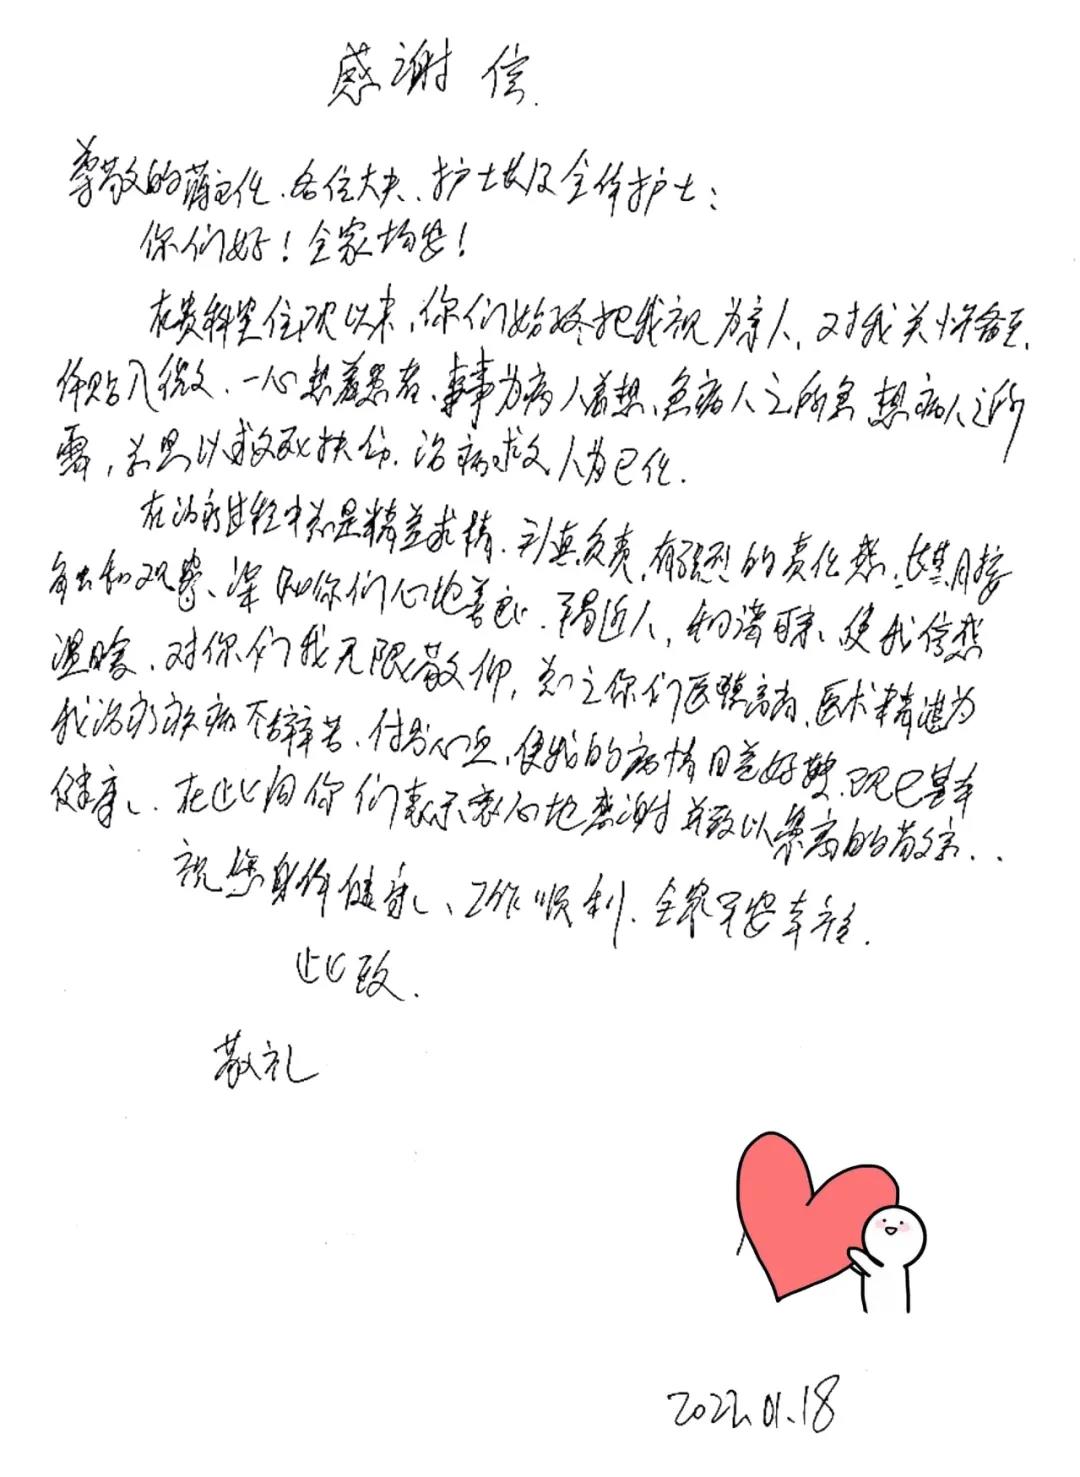 感谢信.
尊敬的蒋主任.各位大夫、护士长及全体护士:
你们好!全家均安!
在贵科室住院以来,你们始终把我视为亲人,对我关怀备至.
体贴入微.一心想着患者、事事为病人着想、急病人之所急 想病人之所
需,总是以救死扶伤.治病救人为己任.
在治疗过程中总是精益求精.认真负责,有强烈的责任感.长期接
触和观察、深知你们心地善良.平易近人,和谐可亲、使我倍感
温暖.对你们我无限敬仰,总之你们医德高尚,医术精湛为
我治疗疾病不辞辛苦.付出心血,使我的病情日益好转.现已基本
健康、在此向你们表示衷心地感谢并致以崇高的敬意..
祝您身体健康、工作顺利.全家平安幸福.
此致.
敬礼
2022.01.18